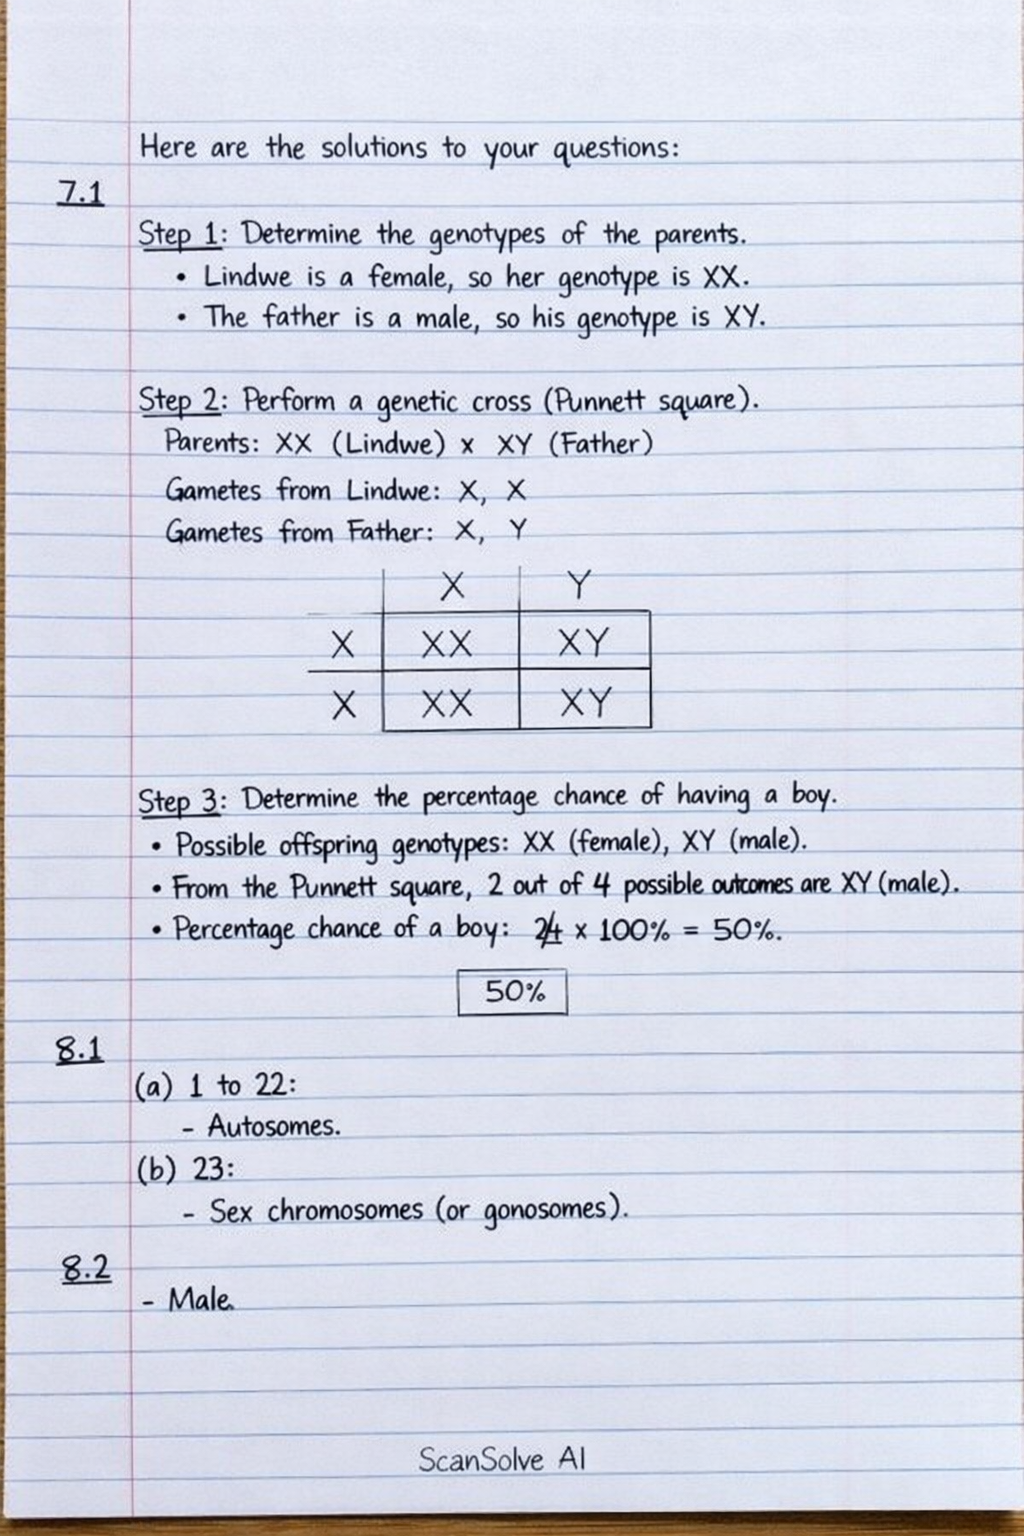 Here are the solutions to your questions:
7.1
Step 1: Determine the genotypes of the parents.
• Lindwe is a female, so her genotype is XX.
• The father is a male, so his genotype is XY.
Step 2: Perform a genetic cross (Punnett square).
Parents: XX (Lindwe) x XY (Father)
Gametes from Lindwe: X, X
Gametes from Father: X, Y
X Y
X XX XY
X XX XY
Step 3: Determine the percentage chance of having a boy.
• Possible offspring genotypes: XX (female), XY (male).
• From the Punnett square, 2 out of 4 possible outcomes are XY (male).
• Percentage chance of a boy: 2/4 x 100% = 50%.
50%
8.1
(a) 1 to 22:
- Autosomes.
(b) 23:
- Sex chromosomes (or gonosomes).
8.2
- Male.
ScanSolve AI